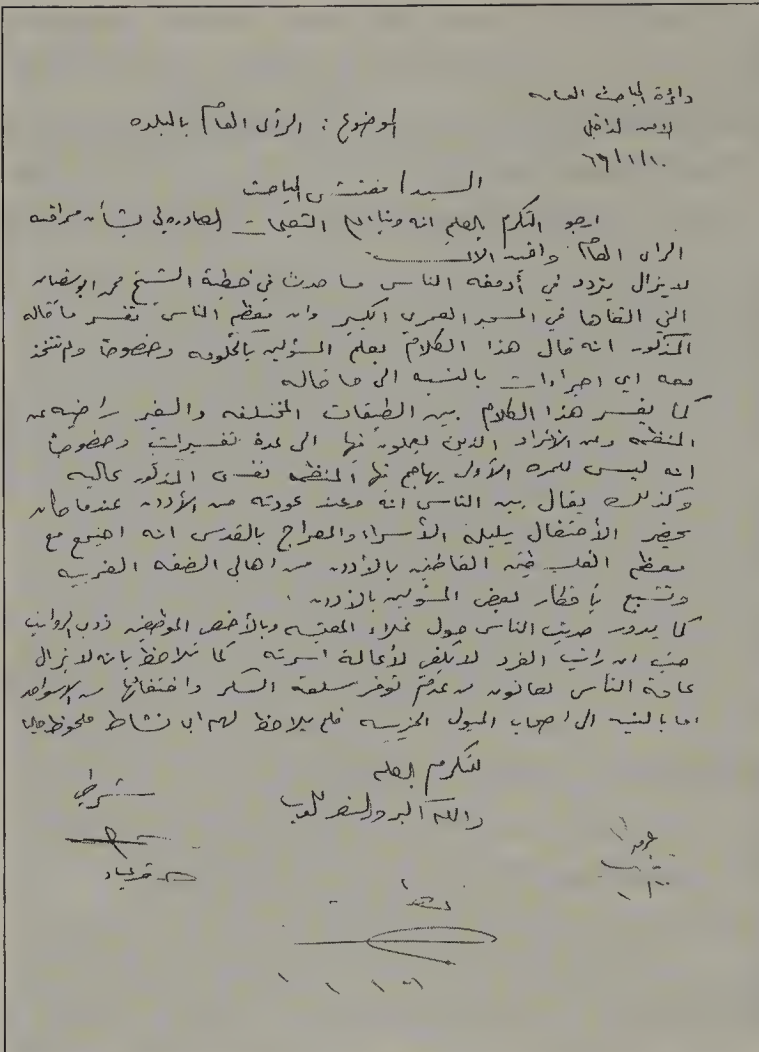 دائرة المباحث العامه
الموضوع : الرأى العام بالبلده
الامن الداخلي
٦٦/١/١٠
السيد / مفتش المباحث
ارجو التكرم بالعلم انه وبناء على التعليمات الصادره لي بشأن مراقبه
الرأى العام وافيد الآتى
لا يزال يتردد في أدمغه الناس ما حدث في خطبة الشيخ محمد ابو
التي القاها في المسجد العمري الكبير وان معظم الناس تفسر ما قاله
المذكور انه قال هذا الكلام بعلم المسؤلين بالحكومه وخصوصاً ولم تتخذ
معه اي اجراءات بالنسبه الى ما قاله
كما يفسر هذا الكلام بين الطبقات المختلفه والغير راضيه عن
المنظمه ومن الأفراد الذين يعملون بها الى عدة تفسيرات وخصوصاً
انه ليس للمره الأولى يهاجم بها المنظمه نفس المذكور عاليه
وكذلك يقال بين الناس انه وعند عودته من الأردن عندما كان
يحضر الأحتفال بليلة الأسراء والمعراج بالقدس انه اجتمع مع
معظم الفلسطينين القاطنين بالأردن من اهالي الضفه الغربيه
وتشبع بأفكار بعض المسؤلين بالأردن .
كما يدور حديث الناس حول غلاء المعيشه وبالأخص الموظفين ذوى الرواتب
حيث ان راتب الفرد لا يكفي لأعالة اسرته كما نلاحظ بانه لا يزال
عامة الناس يعانون من عدم توفر سلعة السكر واختفائها من الاسواق
اما بالنسبه الى اصحاب الميول الحزبيه فلم يلاحظ لهم اى نشاط ملحوظ
للتكرم بالعلم
والله اكبر والنصر للعرب
شرطي